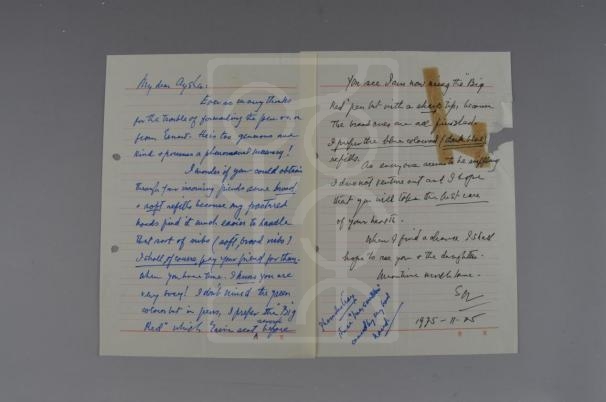 My dear Aysha:
Ever so many thanks
for the trouble of forwarding the pen on
from Ernest. He is too generous and
kind & possesses a phenomenal memory!
I wonder if you could obtain
through your incoming friends some broad
& soft refills because my fractured
hands find it much easier to handle
that sort of nibs (soft broad nibs?
I shall of course pay your friend for them.
When you have time. I know you are
very busy! I don't mind the green
colour but in pens, I prefer the "Big
Red" which sent before
You see I am now using the "Big
Red" pen but with a sharp tip, because
The broad ones are all finished
I prefer the blue coloured (dark blue)
refills.
As everyone seems to be
I do not venture out and I hope
that you will take the best care
of your health.
When I find a chance I shall
hope to see you & the daughter.
Meantime much love.
1975-11-25
this
caused by my bad
hand!